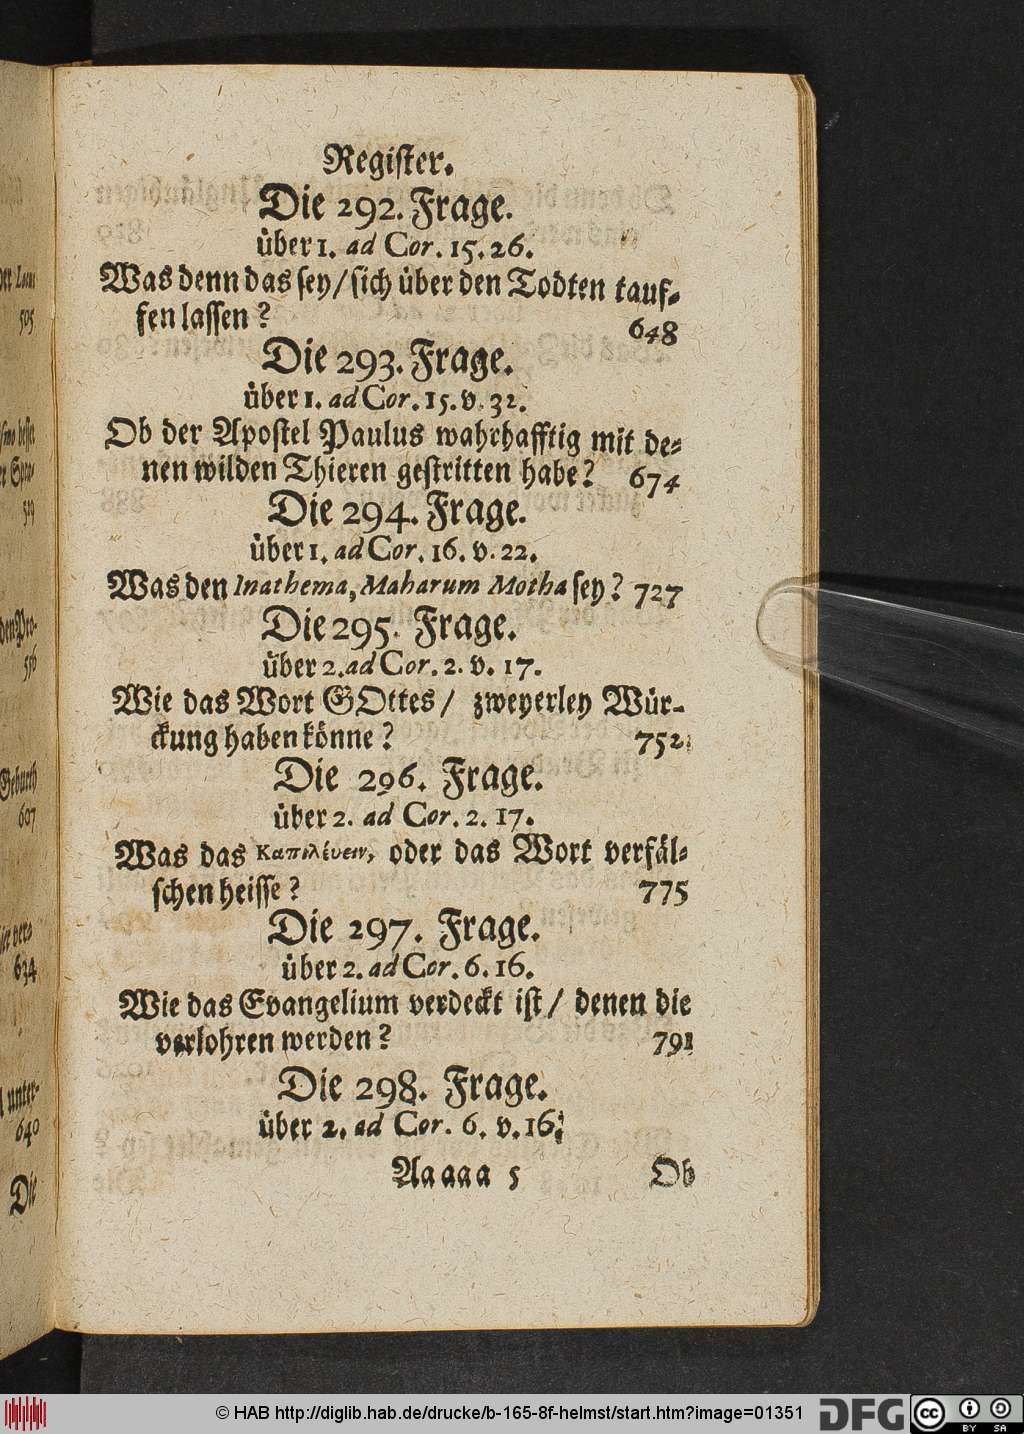 Register.
Die 292. Frage.
über 1. ad Cor. 15. 26.
Was denn das sey / sich über den Todten tauf-
fen lassen? 648
Die 293. Frage.
über 1. ad Cor. 15. v. 32.
Ob der Apostel Paulus wahrhafftig mit de-
nen wilden Thieren gestritten habe? 674
Die 294. Frage.
über 1. ad Cor. 16. v. 22.
Was den Inathema, Maharum Motha sey? 727
Die 295. Frage.
über 2. ad Cor. 2. v. 17.
Wie das Wort GOttes / zweyerley Wür-
ckung haben könne? 752
Die 296. Frage.
über 2. ad Cor. 2. 17.
Was das Καπιλέυειν, oder das Wort verfäl-
schen heisse? 775
Die 297. Frage.
über 2. ad Cor. 6. 16.
Wie das Evangelium verdeckt ist / denen die
verlohren werden? 791
Die 298. Frage.
über 2. ad Cor. 6. v. 16.
Aa aa a 5 Ob
505
519
556
607
634
unter-
640
Die
© HAB http://diglib.hab.de/drucke/b-165-8f-helmst/start.htm?image=01351
DFG
cc BY SA